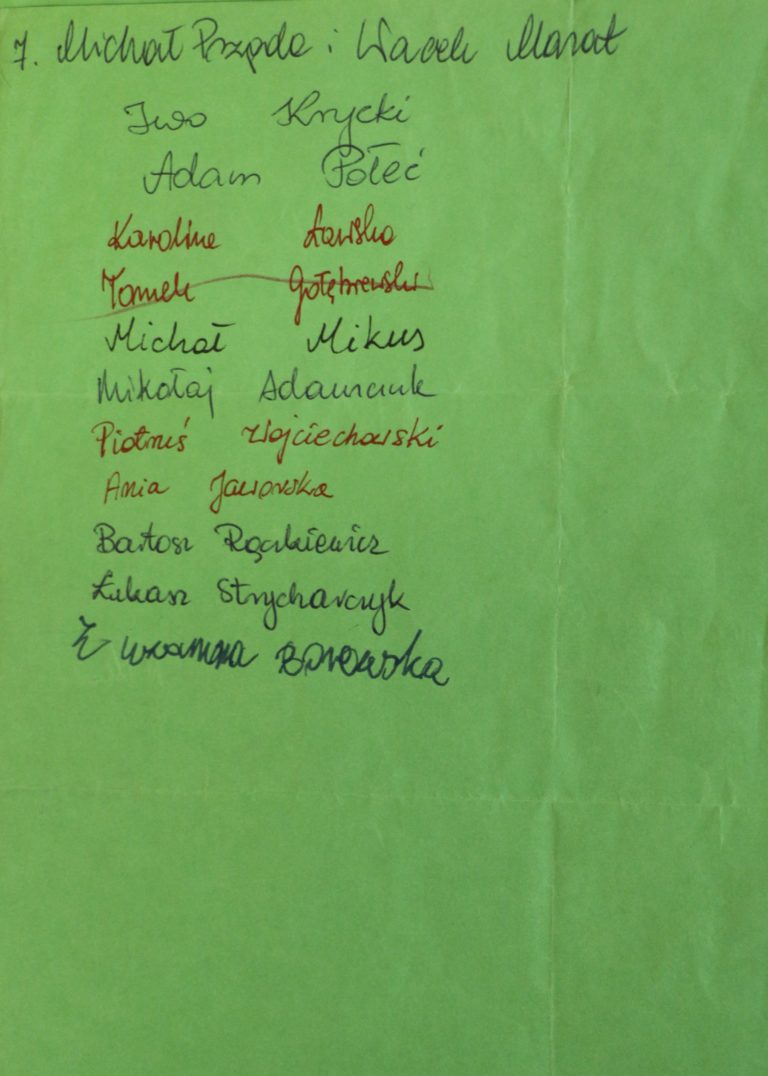 7. Michał Przęda i Wacek Marat
Iwo Krycki
Adam Połeć
Karolina Ławska
Tomek Gołębiewski
Michał Mikus
Mikołaj Adamczuk
Piotruś Wojciechowski
Ania Jaworska
Bartosz Rączkiewicz
Łukasz Strycharczyk
Zuzanna Borowska